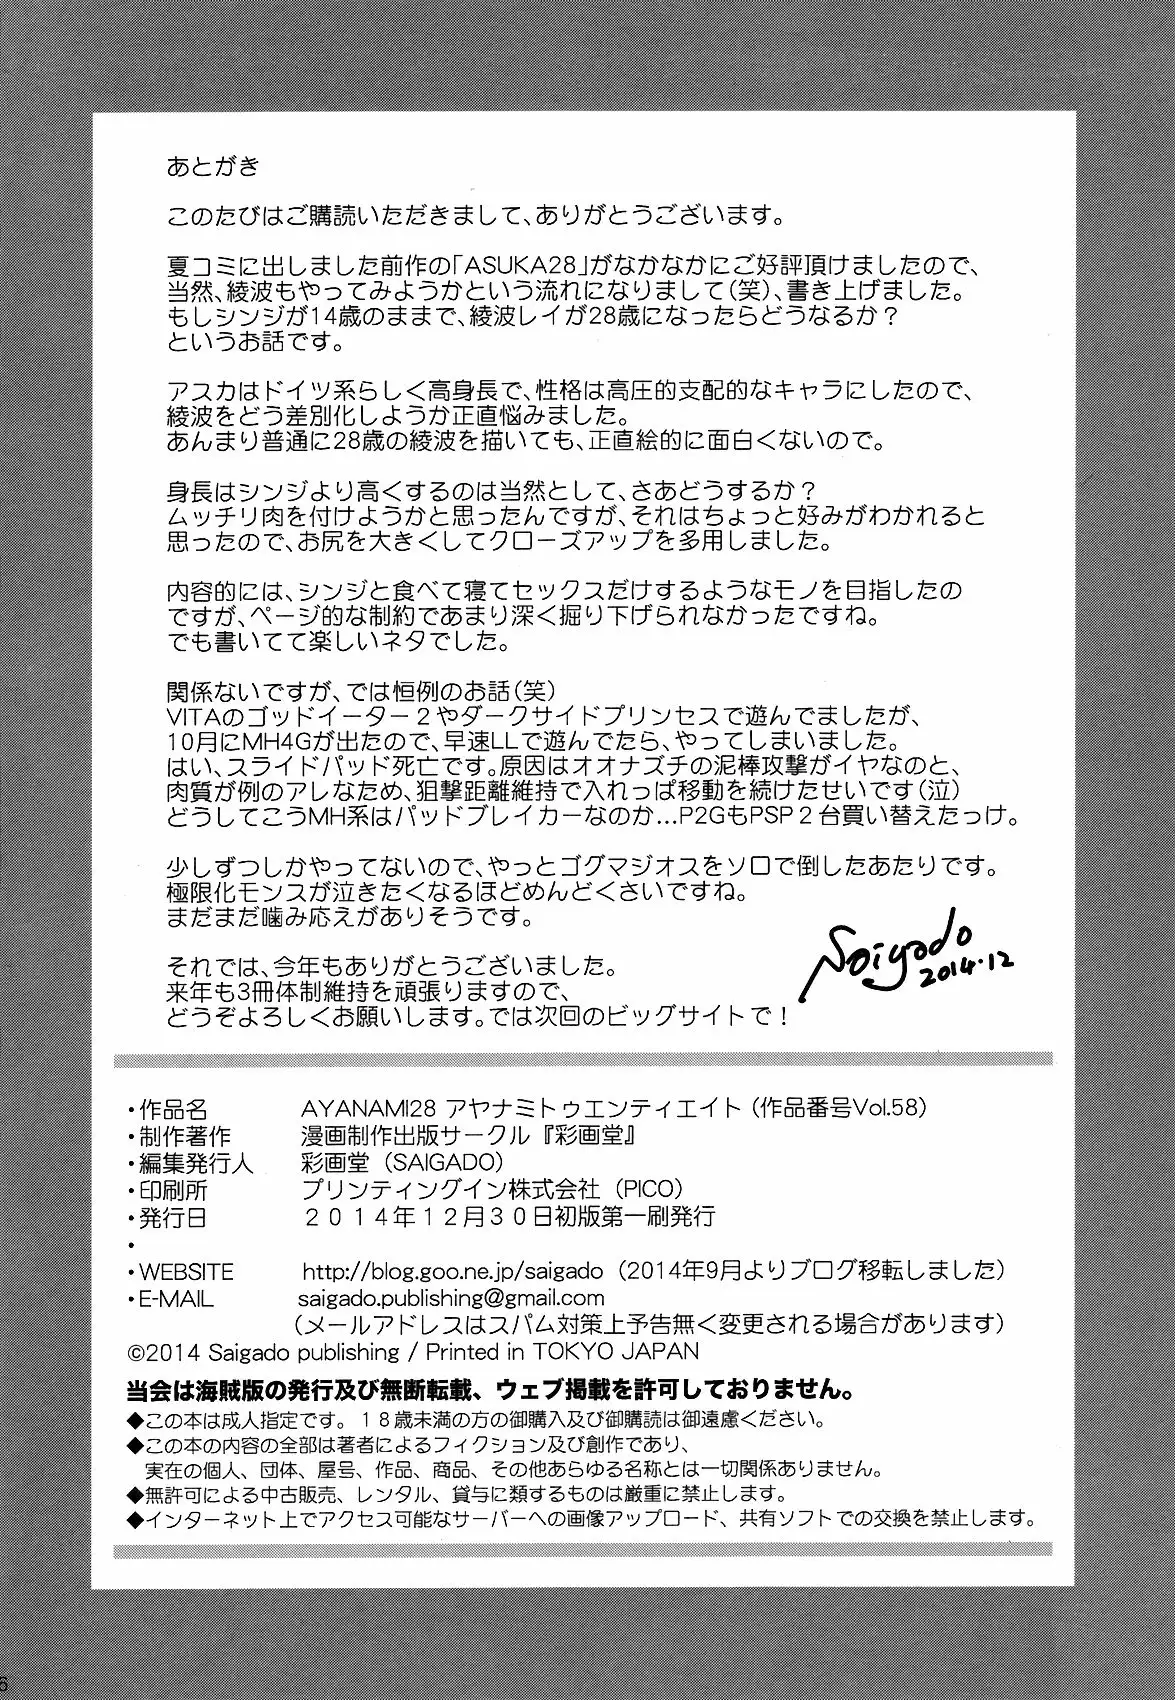 あとがき
このたびはご購読いただきまして、ありがとうございます。
夏コミに出しました前作の「ASUKA28」がなかなかにご好評頂けましたので、
当然、綾波もやってみようかという流れになりまして（笑）、書き上げました。
もしシンジが14歳のままで、綾波レイが28歳になったらどうなるか？
というお話です。
アスカはドイツ系らしく高身長で、性格は高圧的支配的なキャラにしたので、
綾波をどう差別化しようか正直悩みました。
あんまり普通に28歳の綾波を描いても、正直絵的に面白くないので。
身長はシンジより高くするのは当然として、さあどうするか？
ムッチリ肉を付けようかと思ったんですが、それはちょっと好みがわかれると
思ったので、お尻を大きくしてクローズアップを多用しました。
内容的には、シンジと食べて寝てセックスだけするようなモノを目指したの
ですが、ページ的な制約であまり深く掘り下げられなかったですね。
でも書いてて楽しいネタでした。
関係ないですが、では恒例のお話（笑）
VITAのゴッドイーター２やダークサイドプリンセスで遊んでましたが、
10月にMH4Gが出たので、早速LLで遊んでたら、やってしまいました。
はい、スライドパッド死亡です。原因はオオナズチの泥棒攻撃がイヤなのと、
肉質が例のアレなため、狙撃距離維持で入れっぱ移動を続けたせいです（泣）
どうしてこうMH系はパッドブレイカーなのか…P2GもPSP２台買い替えたっけ。
少しずつしかやってないので、やっとゴグマジオスをソロで倒したあたりです。
極限化モンスが泣きたくなるほどめんどくさいですね。
まだまだ噛み応えがありそうです。
Saigado
2014.12
それでは、今年もありがとうございました。
来年も3冊体制維持を頑張りますので、
どうぞよろしくお願いします。では次回のビッグサイトで！
・作品名 AYANAMI28 アヤナミトゥエンティエイト（作品番号Vol.58）
・制作著作 漫画制作出版サークル『彩画堂』
・編集発行人 彩画堂（SAIGADO）
・印刷所 プリンティングイン株式会社（PICO）
・発行日 ２０１４年１２月３０日初版第一刷発行
・
・WEBSITE http://blog.goo.ne.jp/saigado（2014年9月よりブログ移転しました）
・E-MAIL saigado.publishing@gmail.com
（メールアドレスはスパム対策上予告無く変更される場合があります）
©2014 Saigado publishing / Printed in TOKYO JAPAN
当会は海賊版の発行及び無断転載、ウェブ掲載を許可しておりません。
◆この本は成人指定です。１８歳未満の方の御購入及び御購読は御遠慮ください。
◆この本の内容の全部は著者によるフィクション及び創作であり、
実在の個人、団体、屋号、作品、商品、その他あらゆる名称とは一切関係ありません。
◆無許可による中古販売、レンタル、貸与に類するものは厳重に禁止します。
◆インターネット上でアクセス可能なサーバーへの画像アップロード、共有ソフトでの交換を禁止します。
6